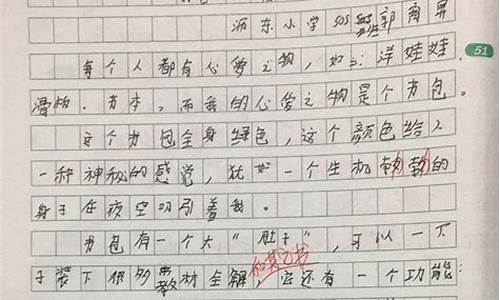 沥东小学505班郭育昇
51
每个人都有心爱之物,如:洋娃娃,
滑板.书本,而我的心爱之物是个书包。
这个书包全身绿色,这个颜色给人
一种神秘的感觉,犹如一个生机勃勃的
身子在夜空吸引着我。
书包有一个大“肚子”,可以一下
子装下很多教材全解和其它书它还有一个功能